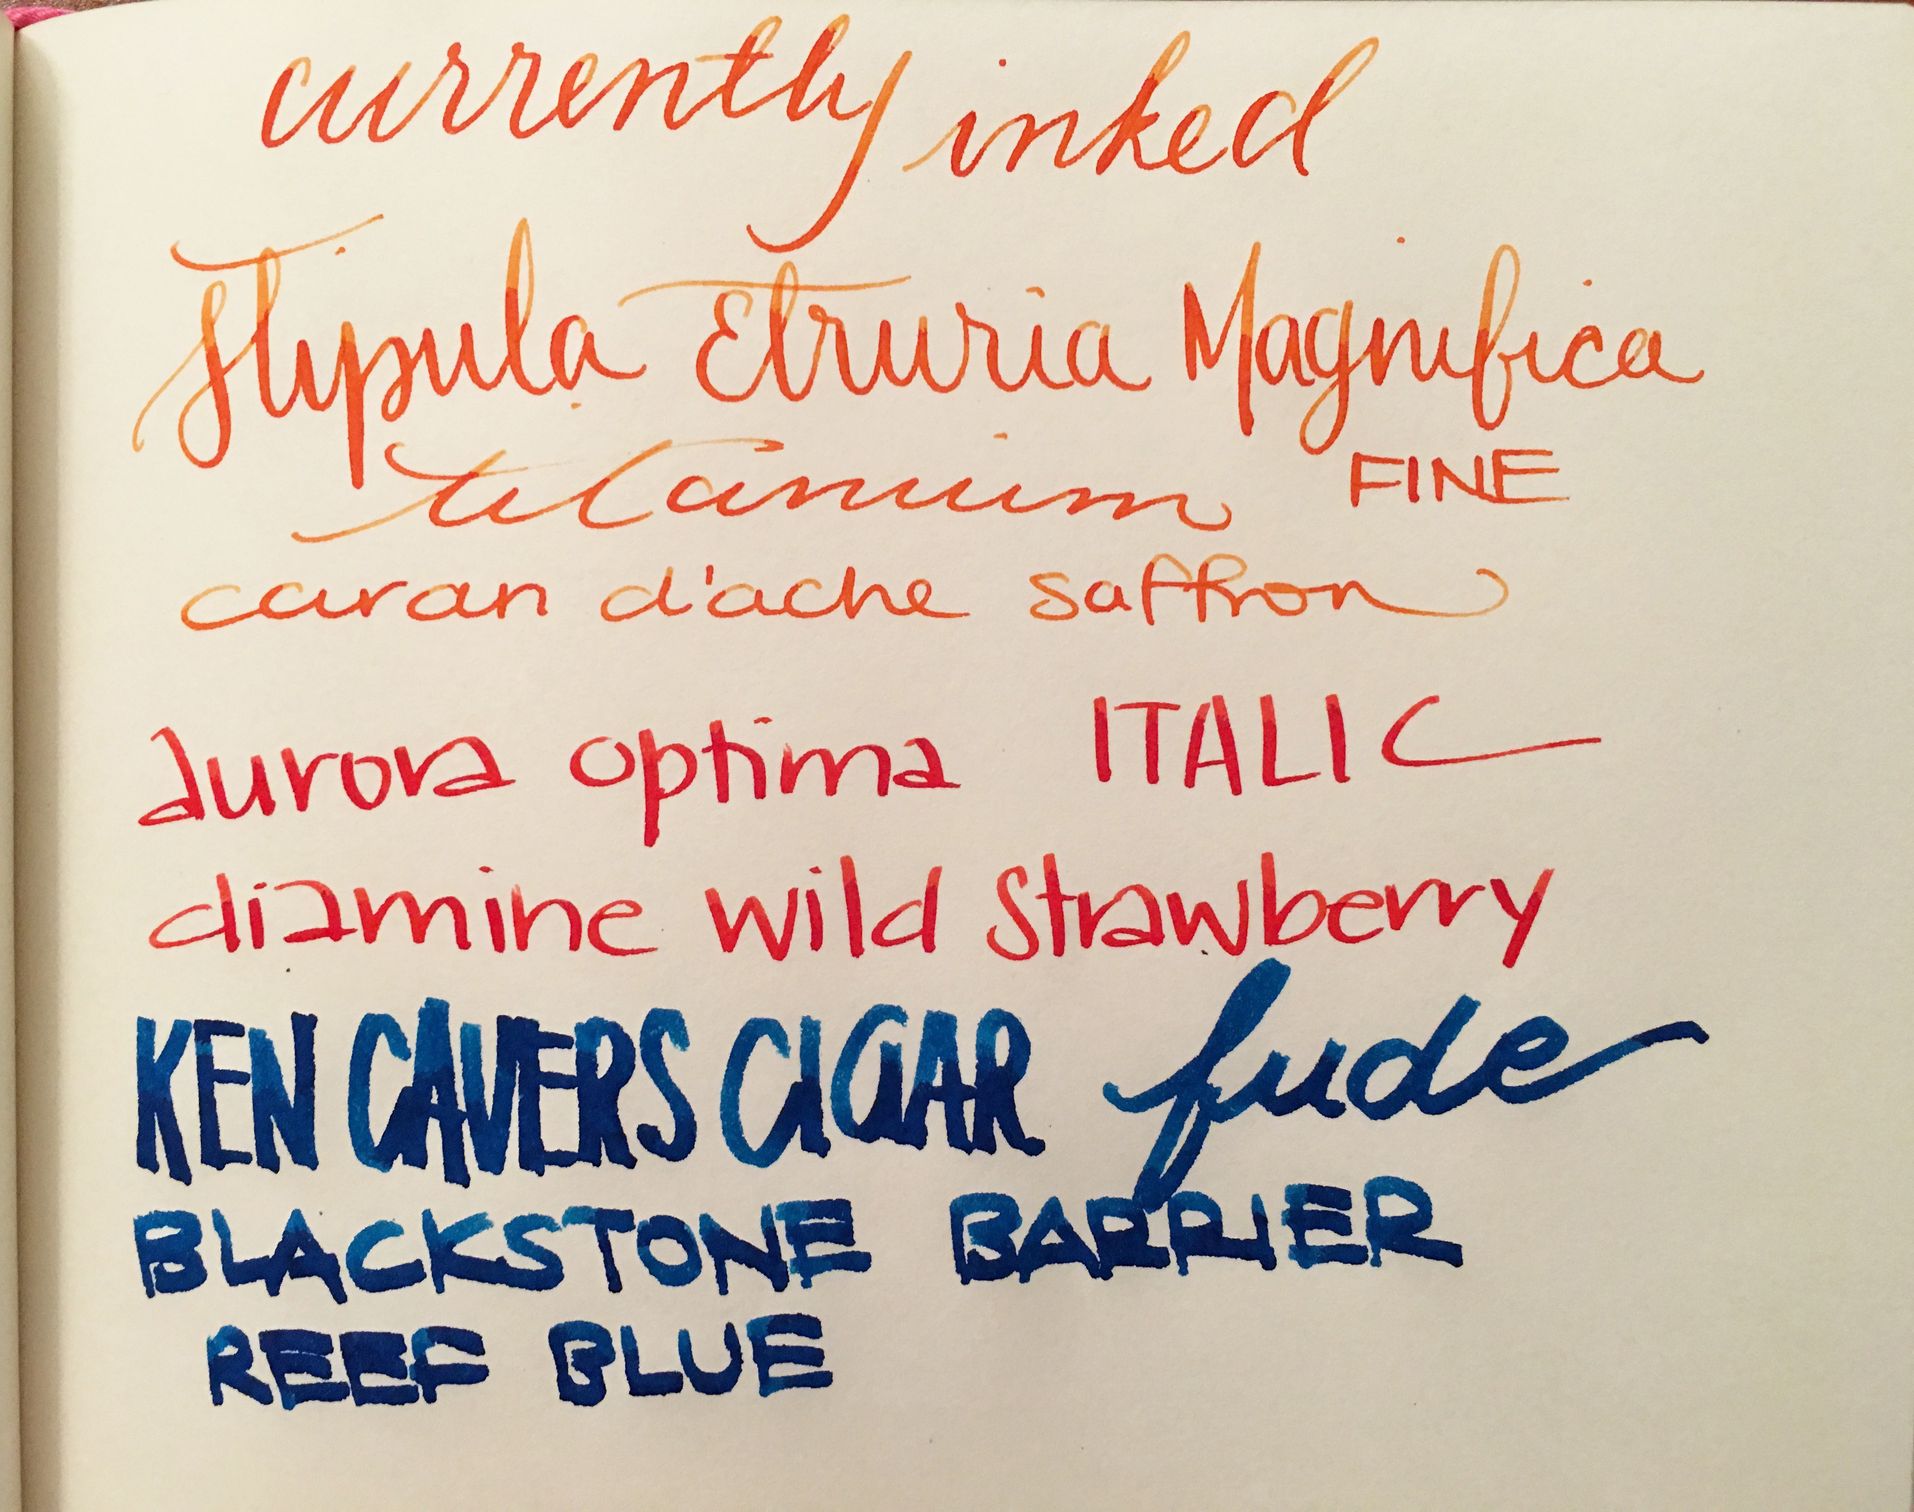 currently inked
Stipula Etruria Magnifica
titanium FINE
caran d'ache saffron
aurora optima ITALIC
diamine wild strawberry
KEN CAVERS CIGAR fude
BLACKSTONE BARRIER
REEF BLUE